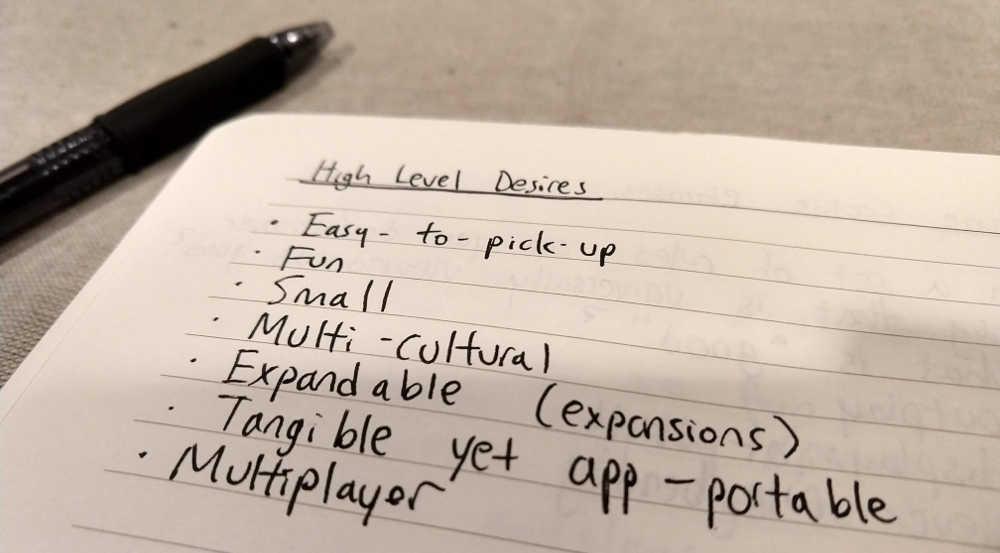 High Level Desires
· Easy-to-pick-up
· Fun
· Small
· Multi-cultural
· Expandable (expansions)
· Tangible yet app-portable
· Multiplayer